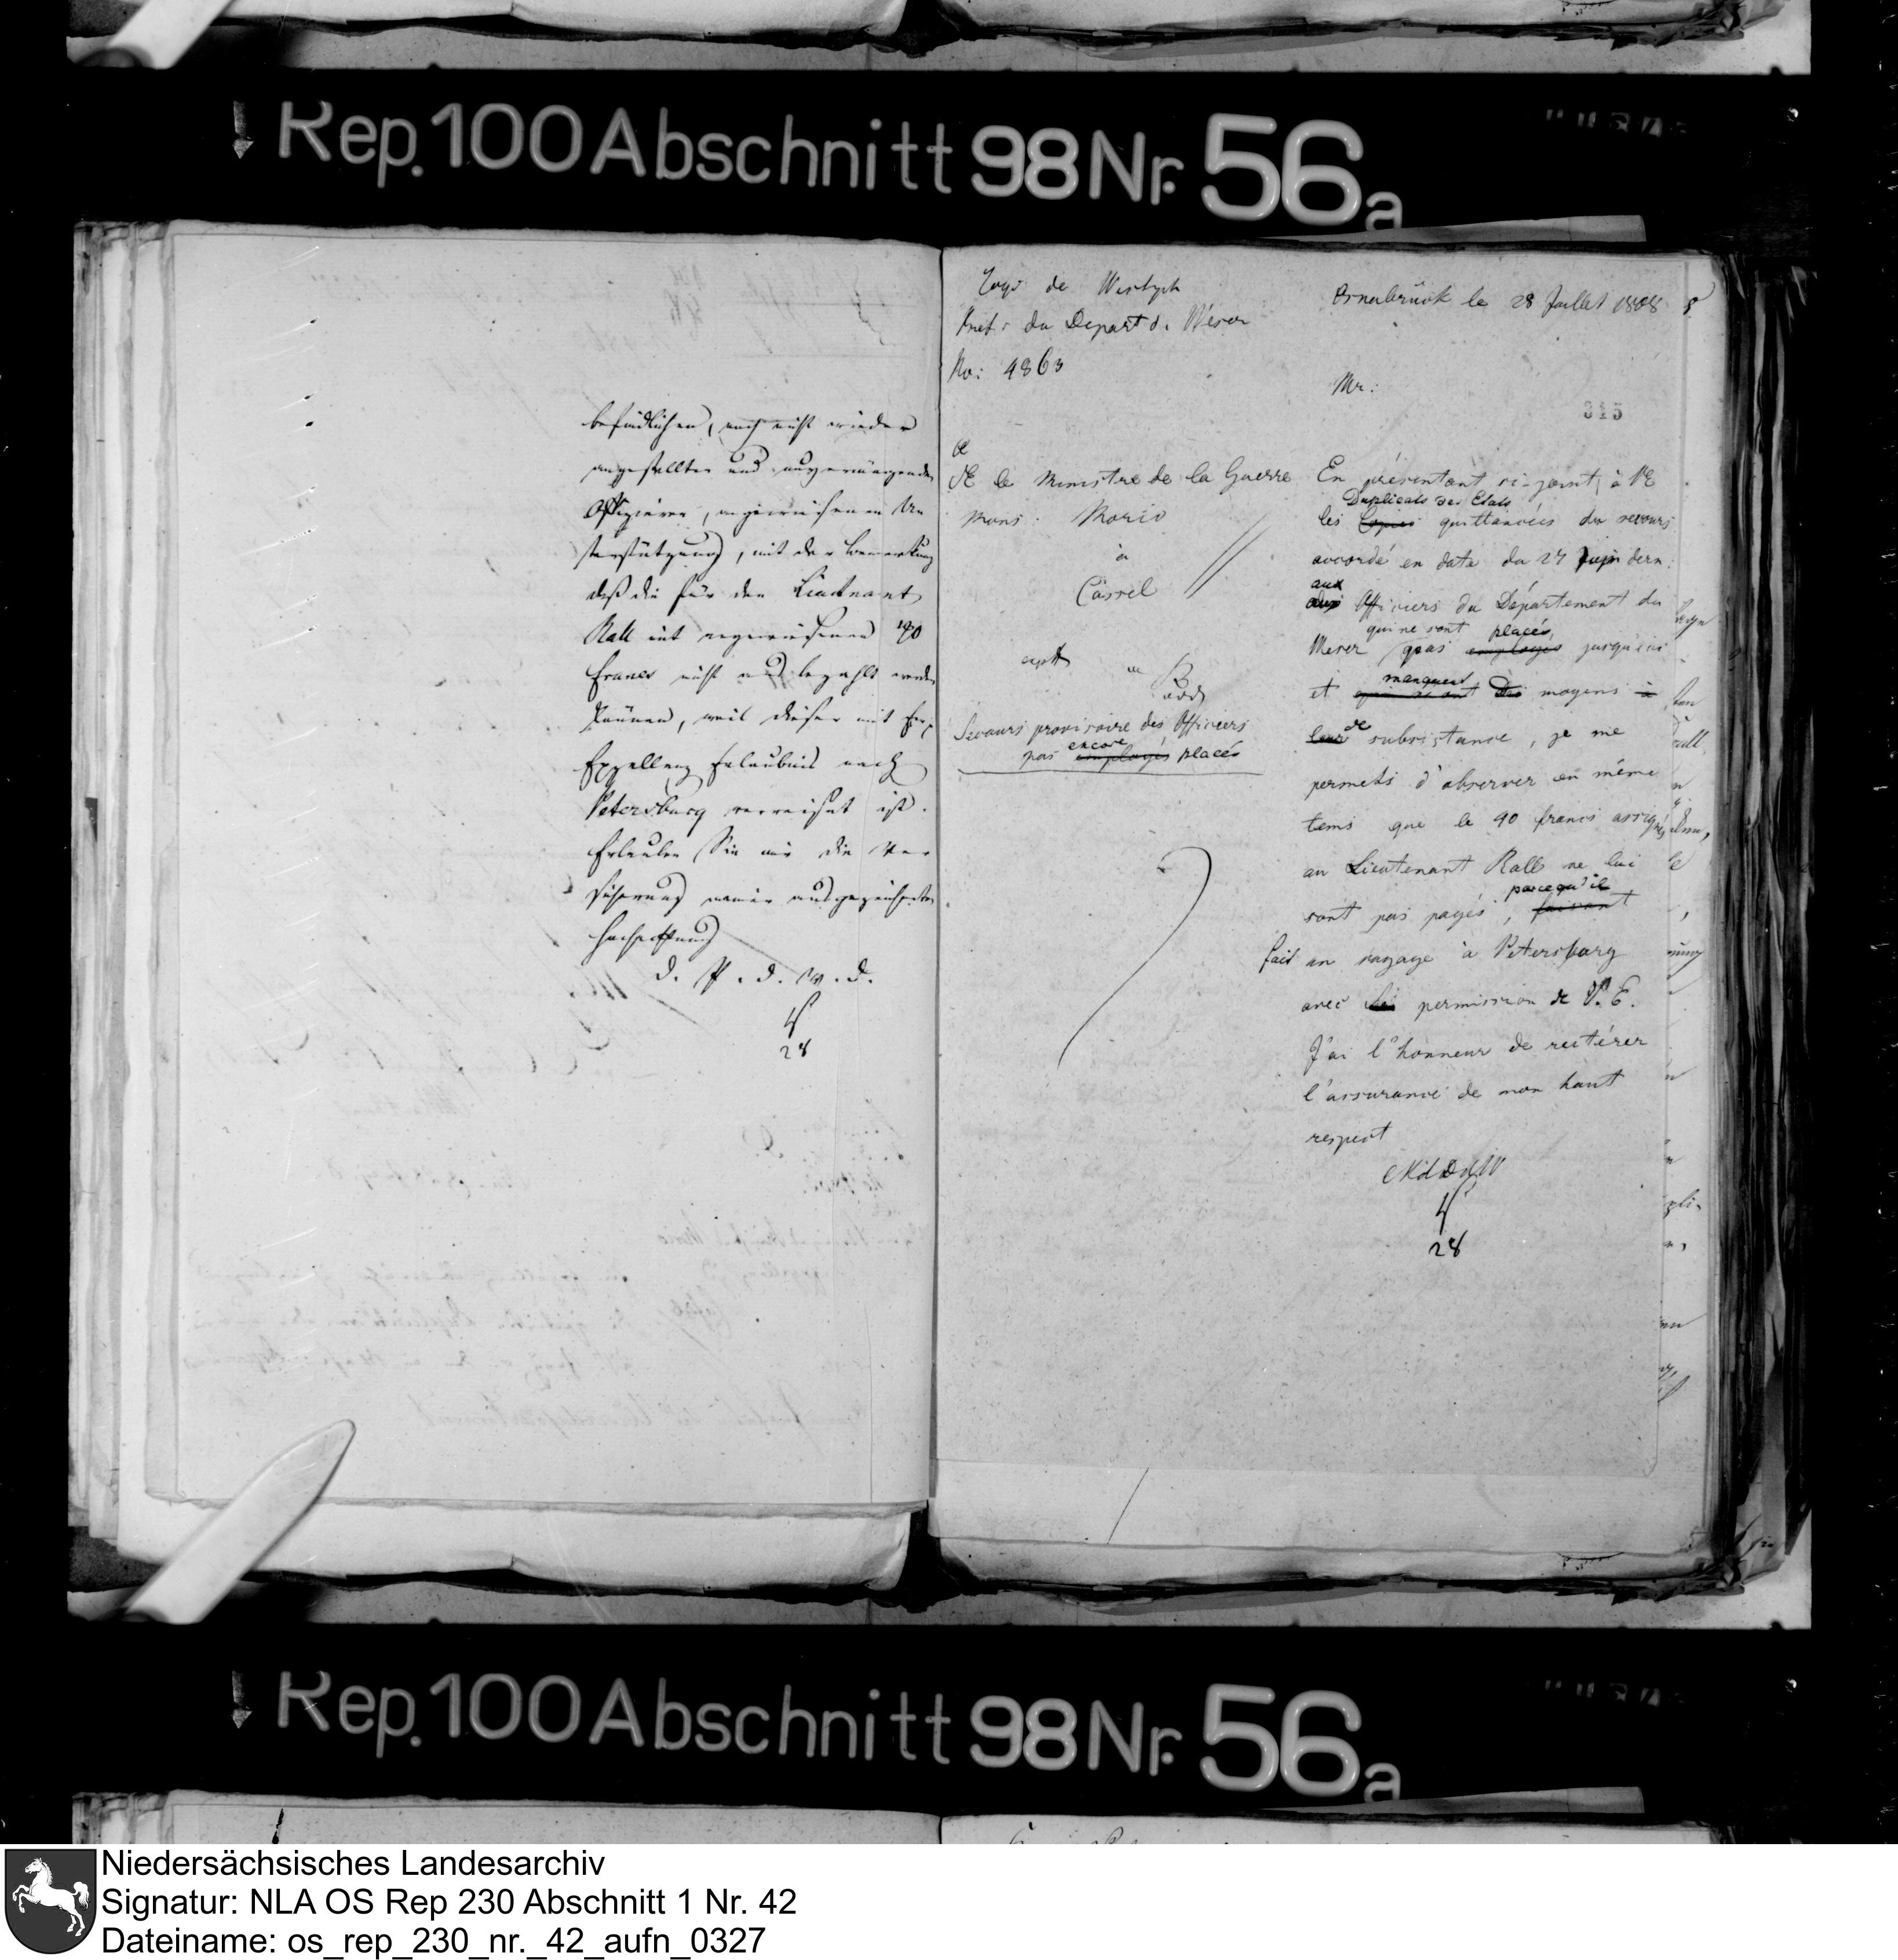 Rep. 100 Abschnitt 98 Nr. 56a
befindlichen, noch nicht wieder
angestellten und
Offizieren, angewiesenen Un
terstützung, mit der Bemerkung
daß die für den Lieutnant
Rall mit angewiesenen 90
francs nicht ausbezahlt werden
können, weil dieser mit Ew.
Exzellenz Erlaubnis nach
Petersburg verreiset ist.
Erlauben Sie mir die Ver
sicherung meiner ausgezeichneten
Hochachtung
d. P. d. W. D.
28
Roys de Westph
Pref: du Depart d. Wéser
No: 4863
Osnabrück le 28 Juillet 1808
Mr:
315
a
SE le Ministre de la Guerre
Mons. Morio
à
Cassel
Secours provisoire des Officiers
pas employés encore placés
En présentant ci-joint, à VE
les Copies Duplicats des Etats quittancées du secours
accordé en date du 27 Juin dern:
aux Officiers du Département du
Weser qui ne sont pas employés placés jusqu'ici
et manquent des moyens à
leur de subsistance, je me
permets d'observer en même
tems que le 90 francs assignés
au Lieutenant Rall ne lui
sont pas payés, faisant parcequ'il
fait un voyage à Petersburg
avec permission de V. E.
J'ai l'honneur de reitérer
l'assurance de mon haut
respect
28
Rep. 100 Abschnitt 98 Nr. 56a
Niedersächsisches Landesarchiv
Signatur: NLA OS Rep 230 Abschnitt 1 Nr. 42
Dateiname: os_rep_230_nr._42_aufn_0327